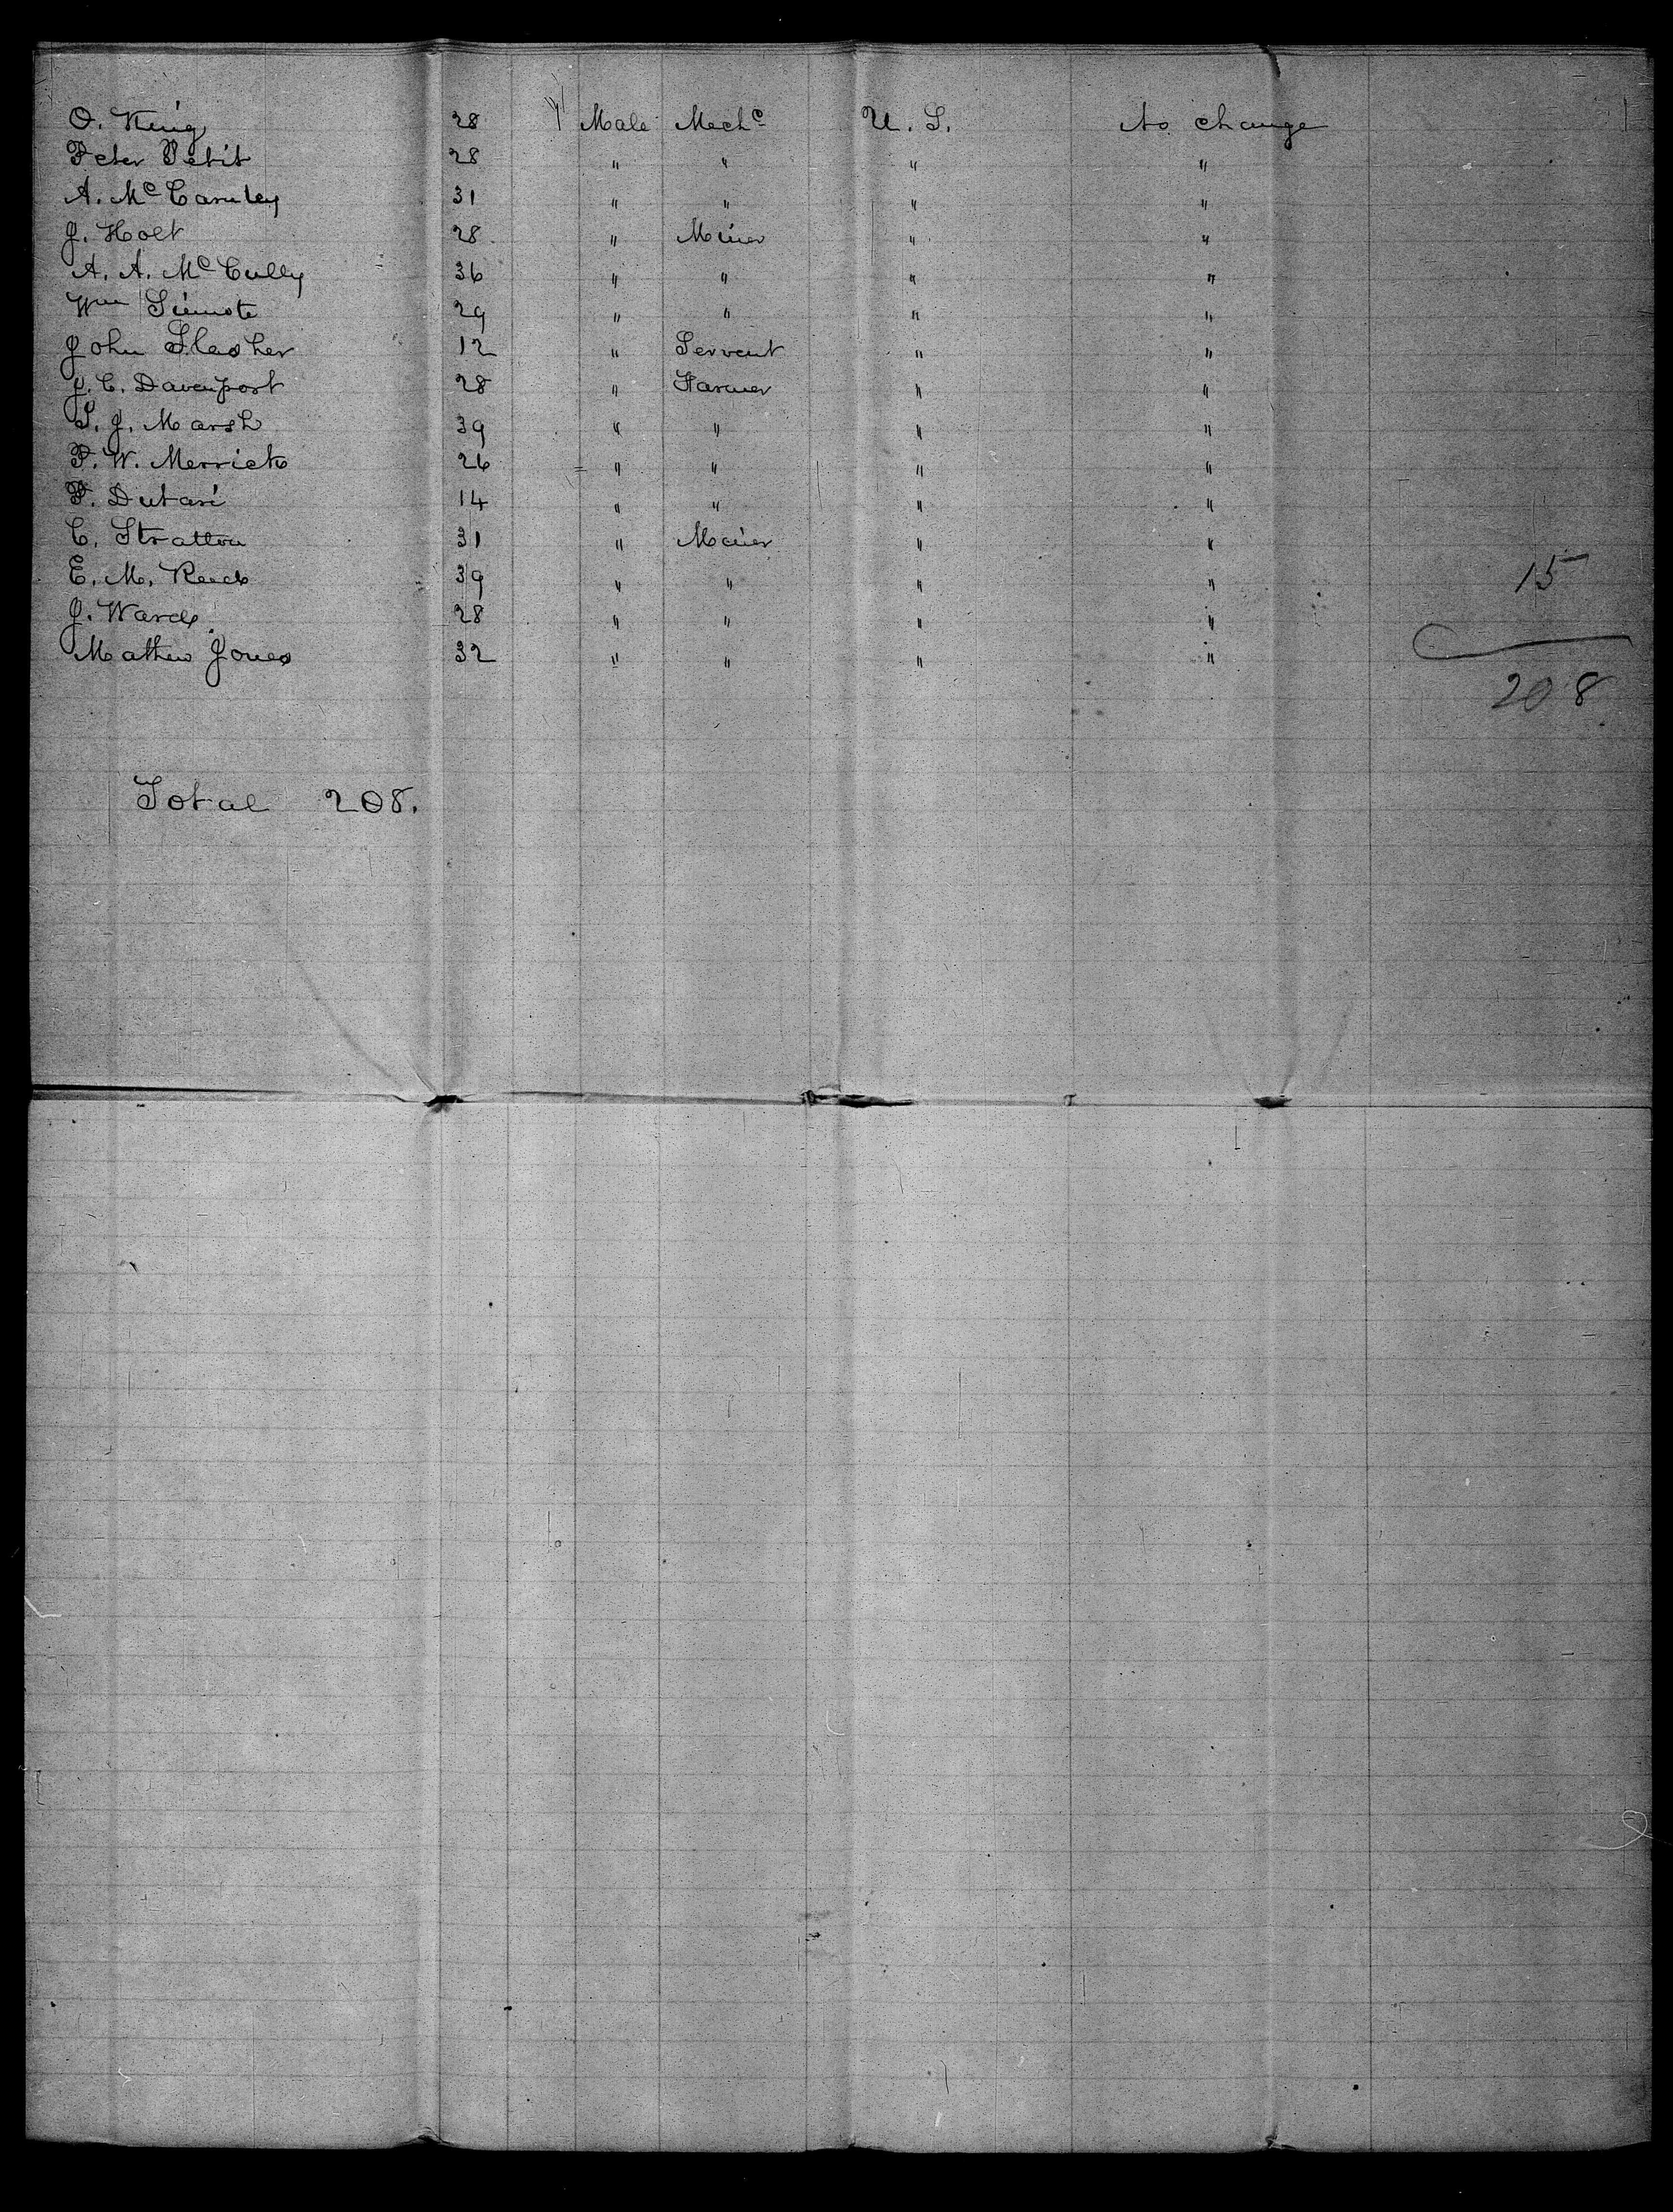 O. King 28 Male Mech^c U. S. No change
Peter Petit 28 " " " "
A. McCamley 31 " " " "
J. Holt 28 " Miner " "
A. A. McCully 36 " " " "
Wm 29 " " " "
John Slasher 12 " Servent " "
J. C. Davenport 28 " Farmer " "
S. J. Marsh 39 " " " "
F. W. Merrick 26 " " " "
F. Dutari 14 " " " "
C. Stratton 31 " Miner " "
E. M. 39 " " " " 15
J. Ward 28 " " " "
Mathew Jones 32 " " " "
208
Total 208.